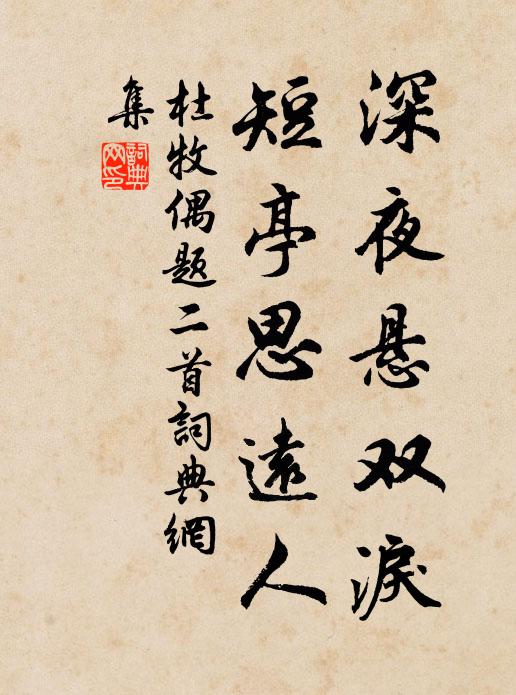 深夜悬双淚
短亭思遠人
杜牧偶题二首詞典網
集
詞典
网印